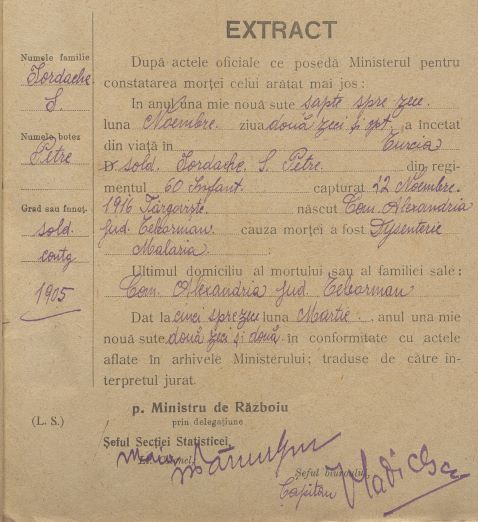 EXTRACT
Numele familie
Iordache
S.
Numele botez
Petre
Grad sau funcț.
sold.
contg
1905
(L. S.)
După actele oficiale ce posedă Ministerul pentru
constatarea morței celui arătat mai jos:
In anul una mie nouă sute șapte spre zece.
luna Noembre. ziua două zeci și opt a încetat
din viață în Turcia
sold. Iordache S. Petre. din regi-
mentul 60 Infant. capturat 22 Noembre.
1916 născut Com. Alexandria
jud. Teleorman cauza morței a fost Dysenterie
Malaria
Ultimul domiciliu al mortului sau al familiei sale:
Com. Alexandria jud. Teleorman
Dat la cinci spre zece luna Martie, anul una mie
nouă sute două zeci și două în conformitate cu actele
aflate în arhivele Ministerului; traduse de către in-
terpretul jurat.
p. Ministru de Războiu
prin delegațiune
Șeful Secției Statisticei,
Maior
Șeful biuroului,
Căpitan